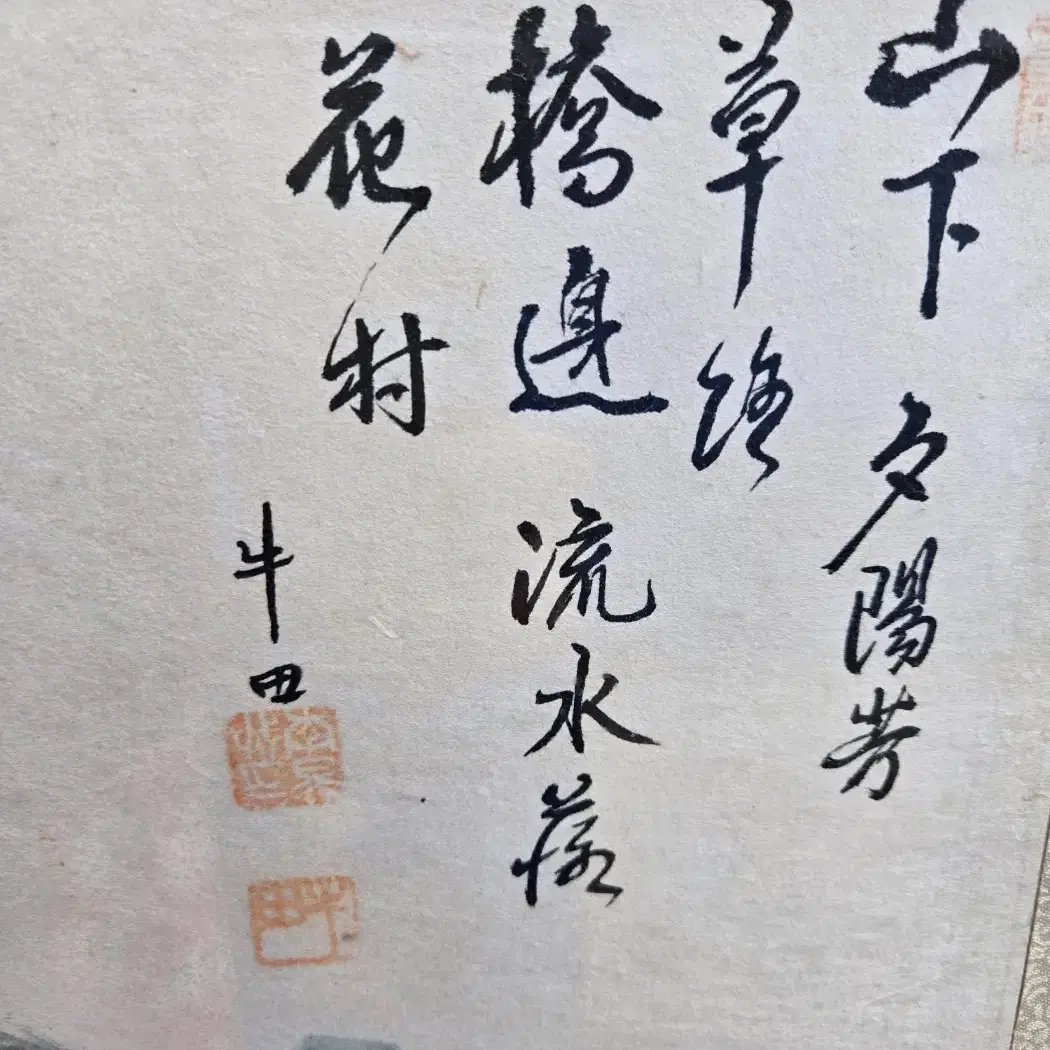 山下夕陽芳
草路
橋邊流水落
花村
牛田